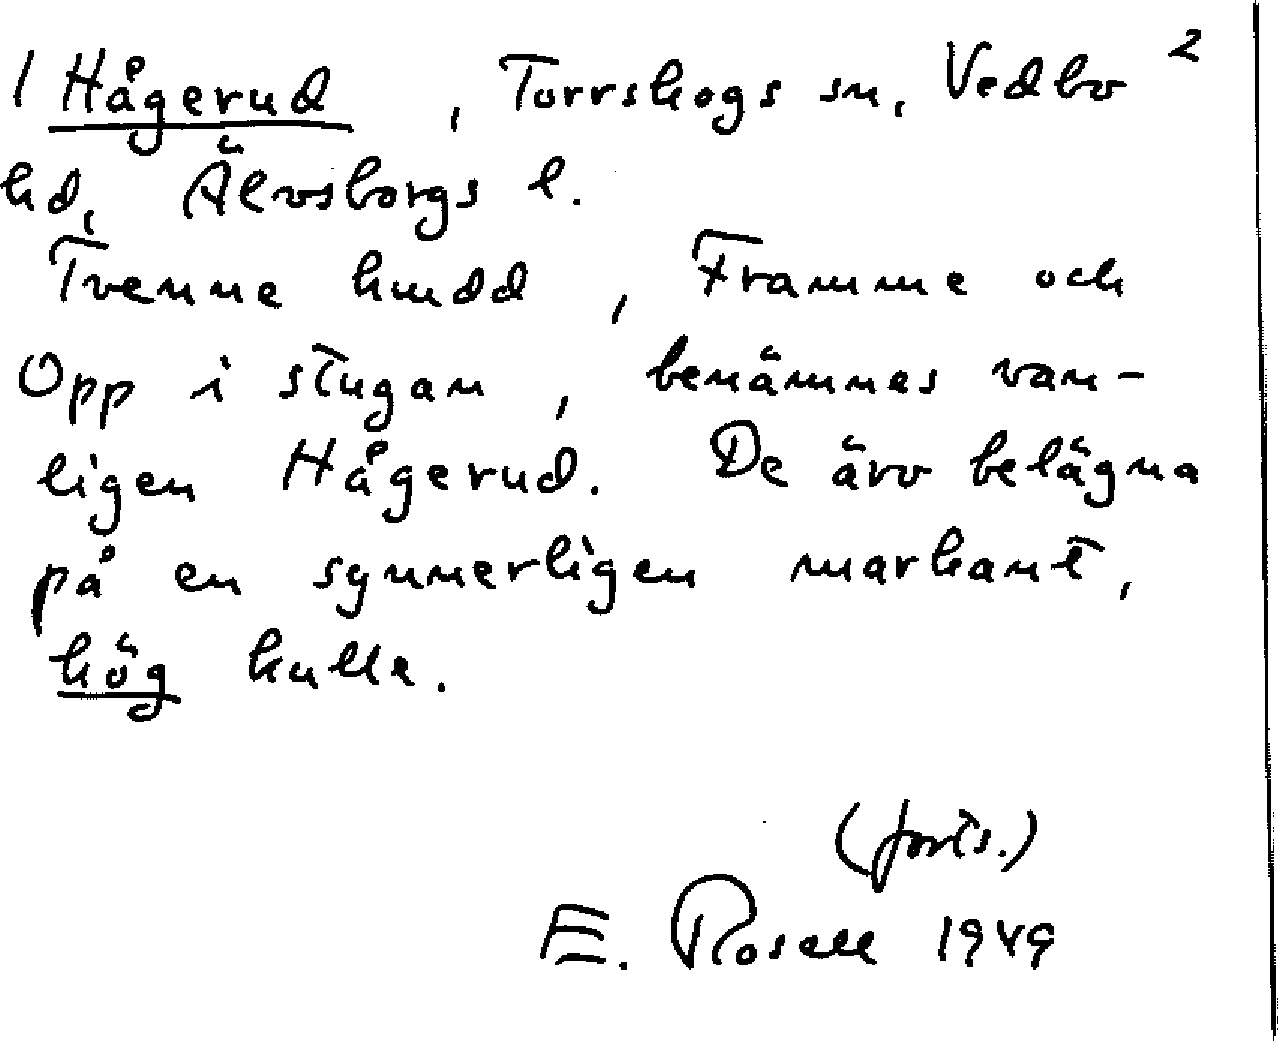 1 Hågerud, Torrskogs sn, Vedbo 2
hd, Älvsborgs l.
Tvenne hmdd, Framme och
Opp i stugan, benämnes van-
ligen Hågerud. De ärv belägna
på en synnerligen markant,
hög kulle.
(forts.)
E. Rosell 1949